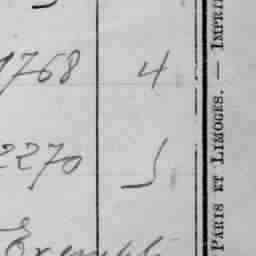 1768 4
2270
Exempl
PARIS ET LIMOGES. — IMPRI